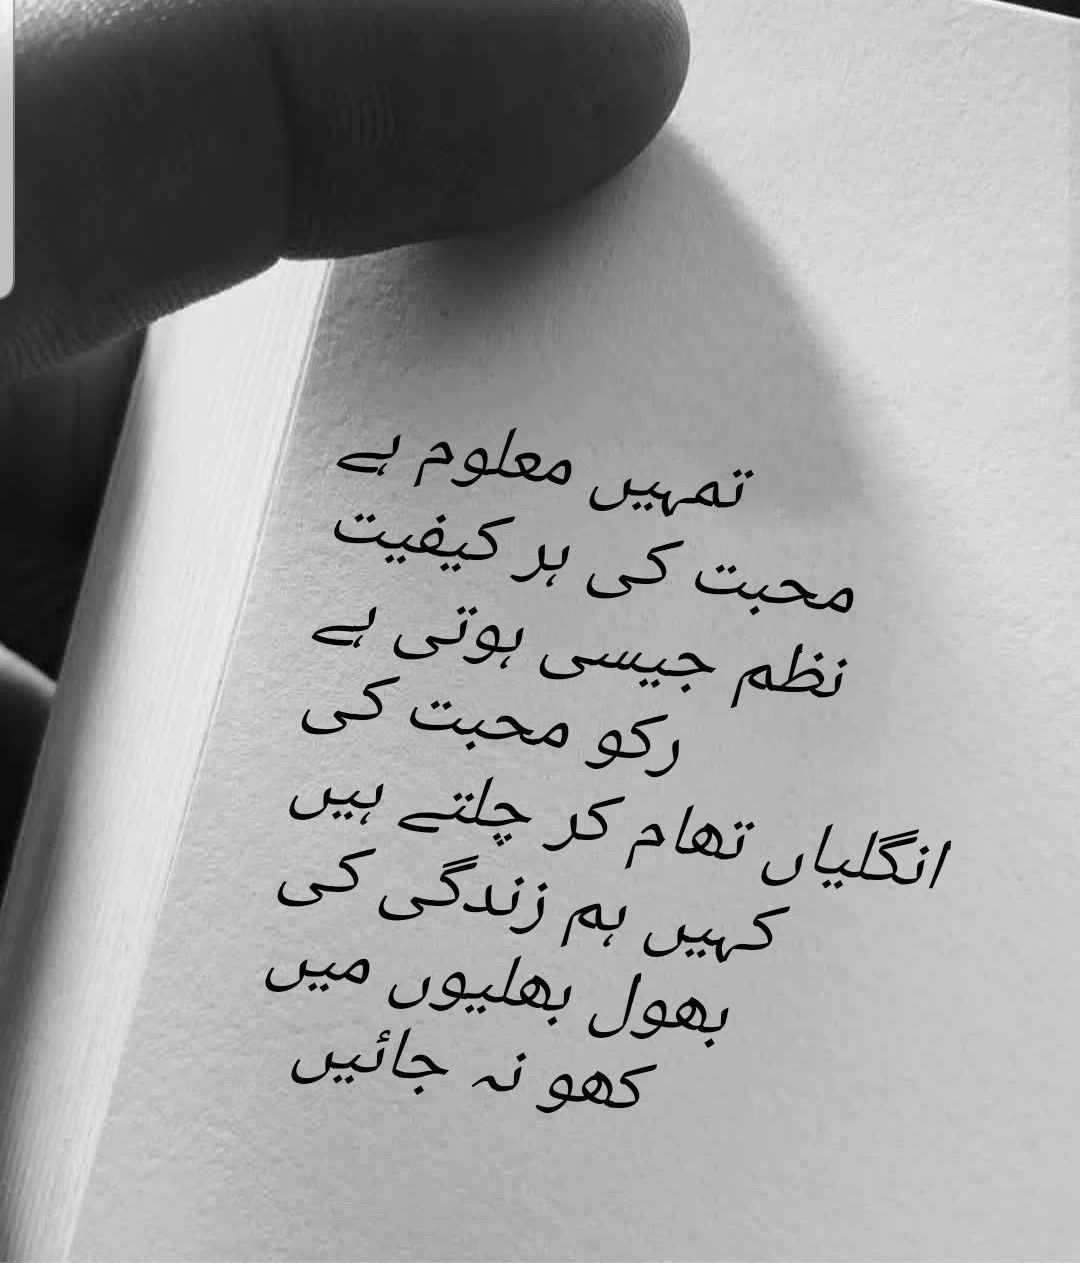 تمہیں معلوم ہے
محبت کی ہر کیفیت
نظم جیسی ہوتی ہے
رکو محبت کی
انگلیاں تھام کر چلتے ہیں
کہیں ہم زندگی کی
بھول بھلیوں میں
کھو نہ جائیں